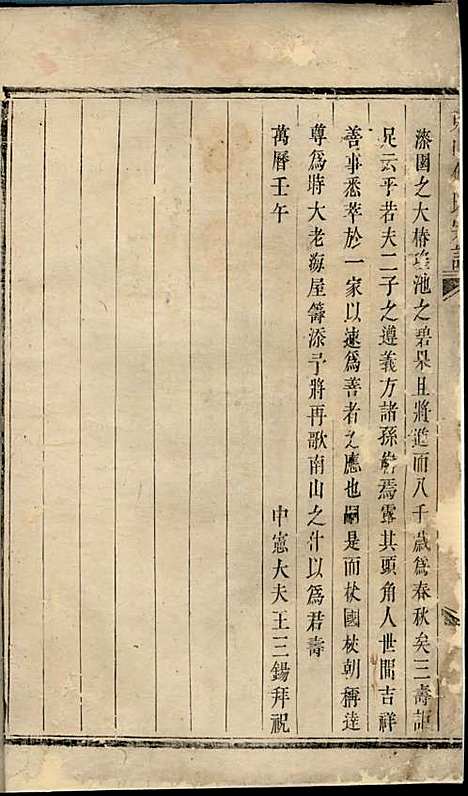 漆園之大椿瑤池之碧柰且將進而八千歲爲春秋矣三壽詎
足云乎若夫二子之遵義方諸孫嶄焉露其頭角人世間吉祥
善事悉萃於一家以速爲善者之應也嗣是而杖國杖朝稱達
尊爲時大老海屋籌添予將再歌南山之什以爲君壽
萬曆壬午
中憲大夫王三錫拜祝